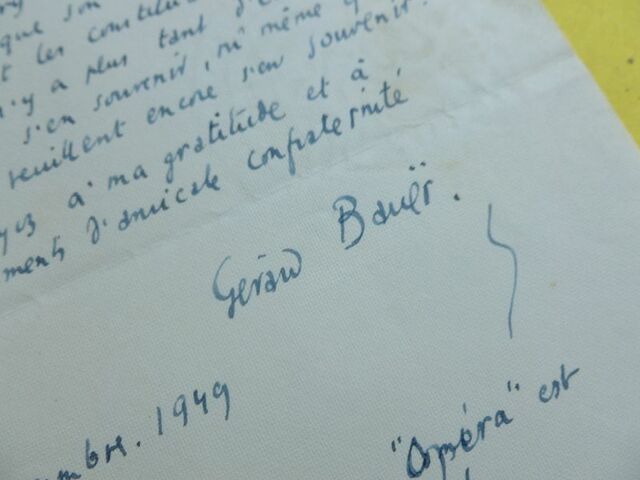 que son
les constitu
n'y a plus tant d'
s'en souvenir, ni même q
veuillent encore s'en souvenir.
yez à ma gratitude et à
ments d'amicale confraternité
Gérard Bauër.
mbre. 1949
"Opéra" est